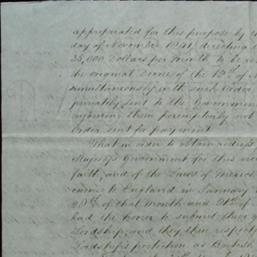 appropriated for this purpose by
day of November 1841, directing
35,000 Dollars per month to be
the original Decree of the 15th of
simultaneously with such Order
privately sent to the Government
enjoining them peremptorily not
Order sent for payment.
That in order to obtain redress
Majesty's Government for this
faith, and of the Laws of Mexico
came to England in January
20th of that month and 21st of
had the honor to submit these
Lordship and they then respect
Lordship's protection as British